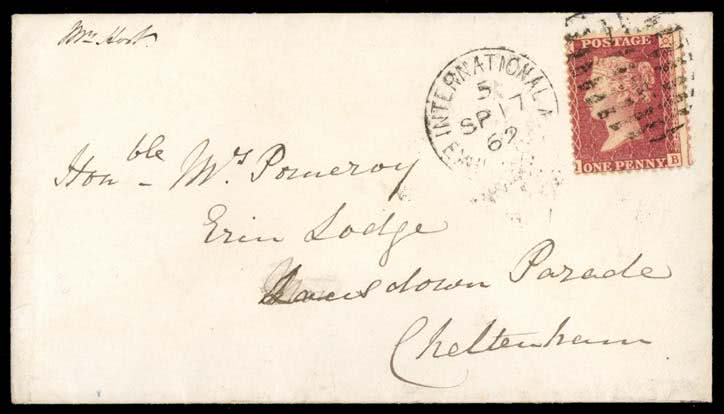 Mrs Hort.
POSTAGE
ONE PENNY
B
INTERNATIONAL
5
SP 17
62
Honble Mrs Pomeroy
Erin Lodge
Lansdown Parade
Cheltenham